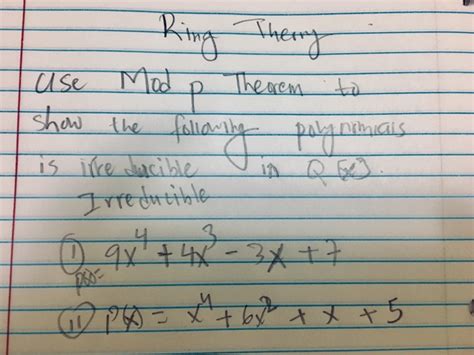 Ring Theory
Use Mod p Theorem to
show the following polynomials
is irreducible in Q[x].
Irreducible
(i) p(x)= 9x⁴ + 4x³ - 3x + 7
(ii) p(x) = x⁴ + 6x² + x + 5